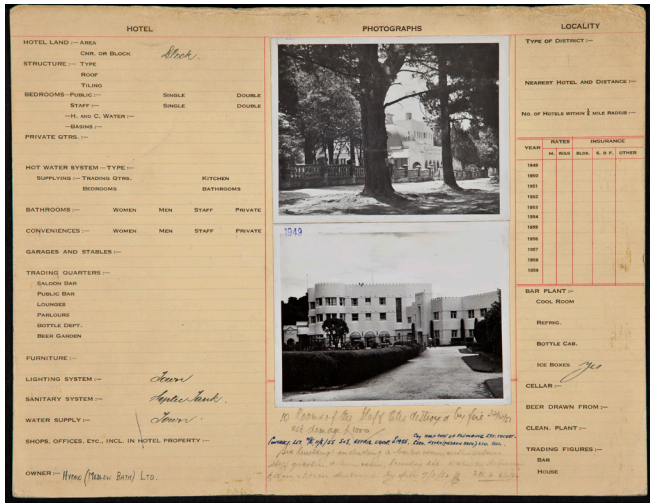 HOTEL
HOTEL LAND :— AREA
CNR. OR BLOCK Block.
STRUCTURE :— TYPE
ROOF
TILING
BEDROOMS—PUBLIC :— SINGLE DOUBLE
STAFF :— SINGLE DOUBLE
—H. AND C. WATER :—
—BASINS :—
PRIVATE QTRS. :—
HOT WATER SYSTEM — TYPE :—
SUPPLYING :— TRADING QTRS. KITCHEN
BEDROOMS BATHROOMS
BATHROOMS :— WOMEN MEN STAFF PRIVATE
CONVENIENCES :— WOMEN MEN STAFF PRIVATE
GARAGES AND STABLES :—
TRADING QUARTERS :—
SALOON BAR
PUBLIC BAR
LOUNGES
PARLOURS
BOTTLE DEPT.
BEER GARDEN
FURNITURE :—
LIGHTING SYSTEM :— Town
SANITARY SYSTEM :— Septic Tank.
WATER SUPPLY :— Town.
SHOPS, OFFICES, ETC., INCL. IN HOTEL PROPERTY :—
OWNER :— HYDRO (MEDLOW BATH) LTD.
PHOTOGRAPHS
1949
10 Rooms of the Staff Qtrs destroyed by fire
est damage £1000/
LOCALITY
TYPE OF DISTRICT :—
NEAREST HOTEL AND DISTANCE :—
NO. OF HOTELS WITHIN ½ MILE RADIUS :—
YEAR RATES INSURANCE
M. W&S BLDG. S. & F. OTHER
1949
1950
1951
1952
1953
1954
1955
1956
1957
1958
1959
BAR PLANT :—
COOL ROOM
REFRIG.
BOTTLE CAB.
ICE BOXES Yes
CELLAR :—
BEER DRAWN FROM :—
CLEAN. PLANT :—
TRADING FIGURES :—
BAR
HOUSE